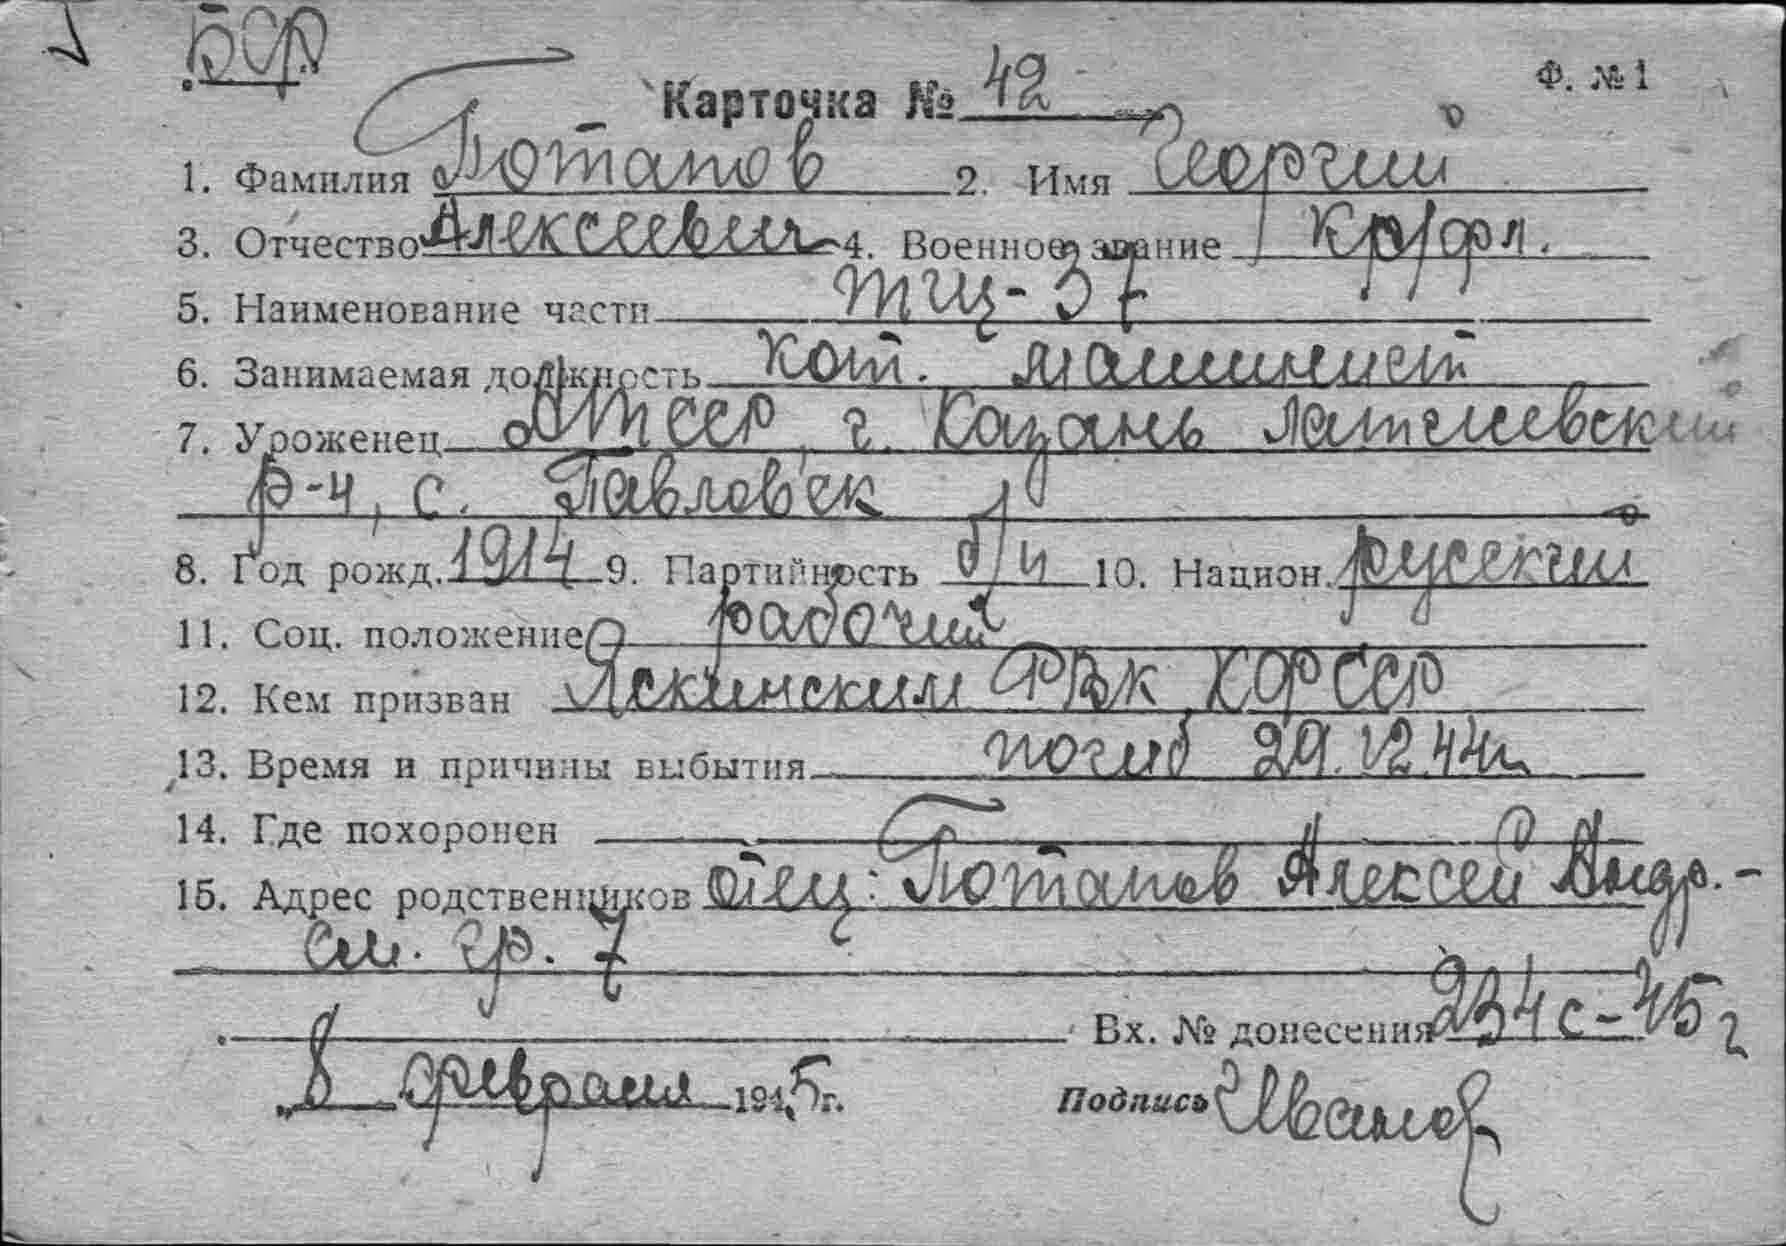 БСФ
Ф. № 1
Карточка № 42
1. Фамилия Потапов 2. Имя Георгий
3. Отчество Алексеевич 4. Военное звание кр/фл.
5. Наименование части ТЩ-37
6. Занимаемая должность кот. машинист
7. Уроженец АТССР, г. Казань Латышевский
р-н, с. Павловск
8. Год рожд. 1914 9. Партийность б/п 10. Национ. русский
11. Соц. положение рабочий
12. Кем призван РВК КФССР
13. Время и причины выбытия погиб 29.12.44г
14. Где похоронен
15. Адрес родственников отец: Потапов Алексей Андр. -
см. гр. 7
Вх. № донесения 234с-45г
„8 февраля 1945г. Подпись Иванов